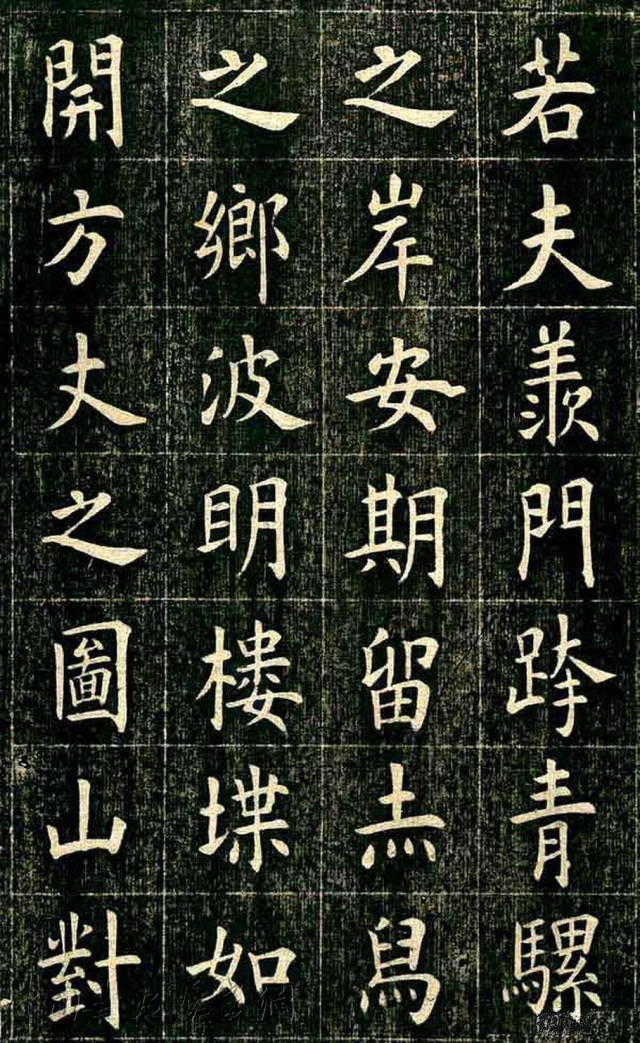 若夫羨門跨青騾
之岸安期留赤舄
之鄉波眀樓堞如
開方丈之圖山對